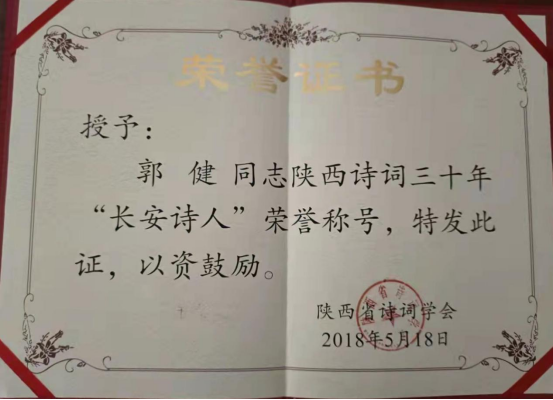 荣誉证书
授予：
郭 健 同志陕西诗词三十年
“长安诗人”荣誉称号，特发此
证，以资鼓励。
陕西省诗词学会
2018年5月18日